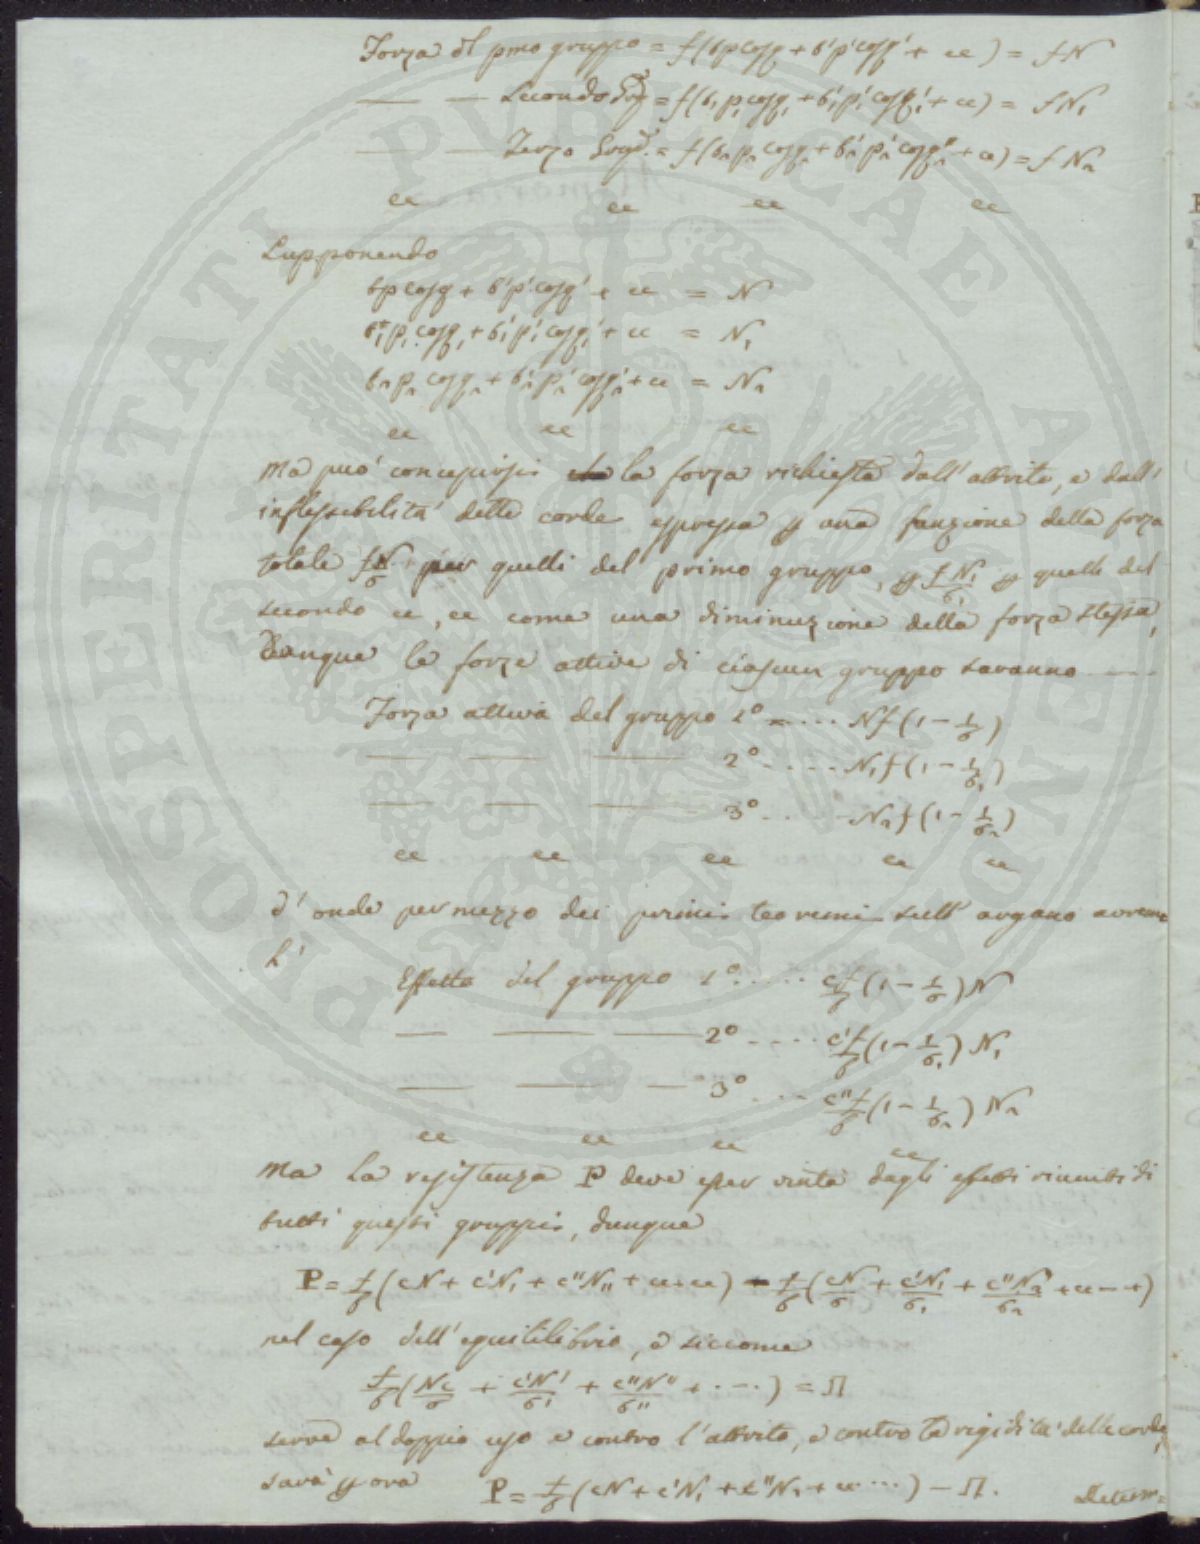 Forza del pmo gruppo = f(bpcosq + b'p'cosq' + ec) = fN
— — Secondo = f(b₁p₁cosq₁ + b'₁p'₁cosq'₁ + ec) = fN₁
— — Terzo = f(b₂p₂cosq₂ + b'₂p'₂cosq'₂ + ec) = fN₂
ec ec ec ec
Supponendo
bpcosq + b'p'cosq' + ec = N
b₁p₁cosq₁ + b'₁p'₁cosq'₁ + ec = N₁
b₂p₂cosq₂ + b'₂p'₂cosq'₂ + ec = N₂
ec ec ec
Ma può concepirsi la forza richiesta dall'attrito, e dall'
inflessibilità delle corde espressa p una funzione della forza
totale fN/σ per quelli del primo gruppo, p fN₁/σ₁ p quelli del
secondo ec, ec come una diminuzione della forza stessa,
Dunque le forze attive di ciascun gruppo saranno —
Forza attiva del gruppo 1º ..... Nf(1 - 1/σ)
— — — 2º ..... N₁f(1 - 1/σ₁)
— — — 3º ..... N₂f(1 - 1/σ₂)
ec ec ec ec ec
d'onde per mezzo dei primi teoremi sull'argano avremo
l'
Effetto del gruppo 1º ..... cf/b(1 - 1/σ)N
— — — 2º ..... c'f/b(1 - 1/σ₁)N₁
— — — 3º ..... c''f/b(1 - 1/σ₂)N₂
ec ec ec ec
Ma la resistenza P deve esser vinta dagli effetti riuniti di
tutti questi gruppi, dunque
P = f/b(cN + c'N₁ + c''N₁₁ + ec..ec) - f/b(cN/σ + c'N₁/σ₁ + c''N₂/σ₂ + ec...)
nel caso dell'equilibrio, e siccome
f/b(Nc/σ + c'N'/σ' + c''N''/σ'' + ....) = Π
serve al doppio uso e contro l'attrito, e contro la rigidità delle corde,
sarà p ora P = f/b(cN + c'N₁ + c''N₂ + ec ...) - Π.
Determ=
PROSPERITATI PUBLICAE AUGENDAE